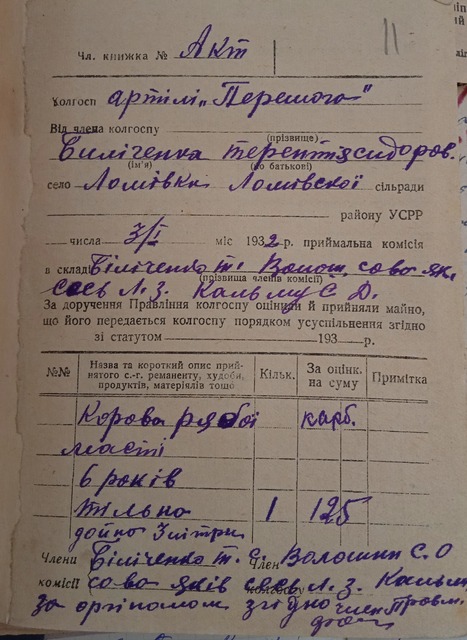 11
Чл. книжка № Акт
Колгосп артілі „Перемога"
Від члена колгоспу
(прізвище)
Біліченка Терентія Сидоров.
(ім'я) (по батькові)
село Ломівка Ломівскої сільради
району УСРР
числа 3/I міс 1932 р. приймальна комісія
в складі Біліченко Т. Волош
(прізвища членів комісії)
Л. З. Кальму С Д.
За доручення Правління колгоспу оцінили й прийняли майно,
що його передається колгоспу порядком усуспільнення згідно
зі статутом 193 р.
№№ Назва та короткий опис прийнятого с.-г. реманенту, худоби, продуктів, матеріялів тощо Кільк. За оцінк. на суму Примітка
Корова рябої карб.
масті
6 років
тільно 1 125
дойно 3 літри
Члени Біліченко Т. С. Член Волошин С. О
комісії колгоспу Л. З.
За оргіналом згідно член Правл.